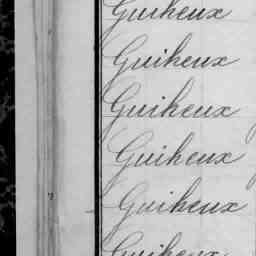 Guiheux
Guiheux
Guiheux
Guiheux
Guiheux
Guiheux